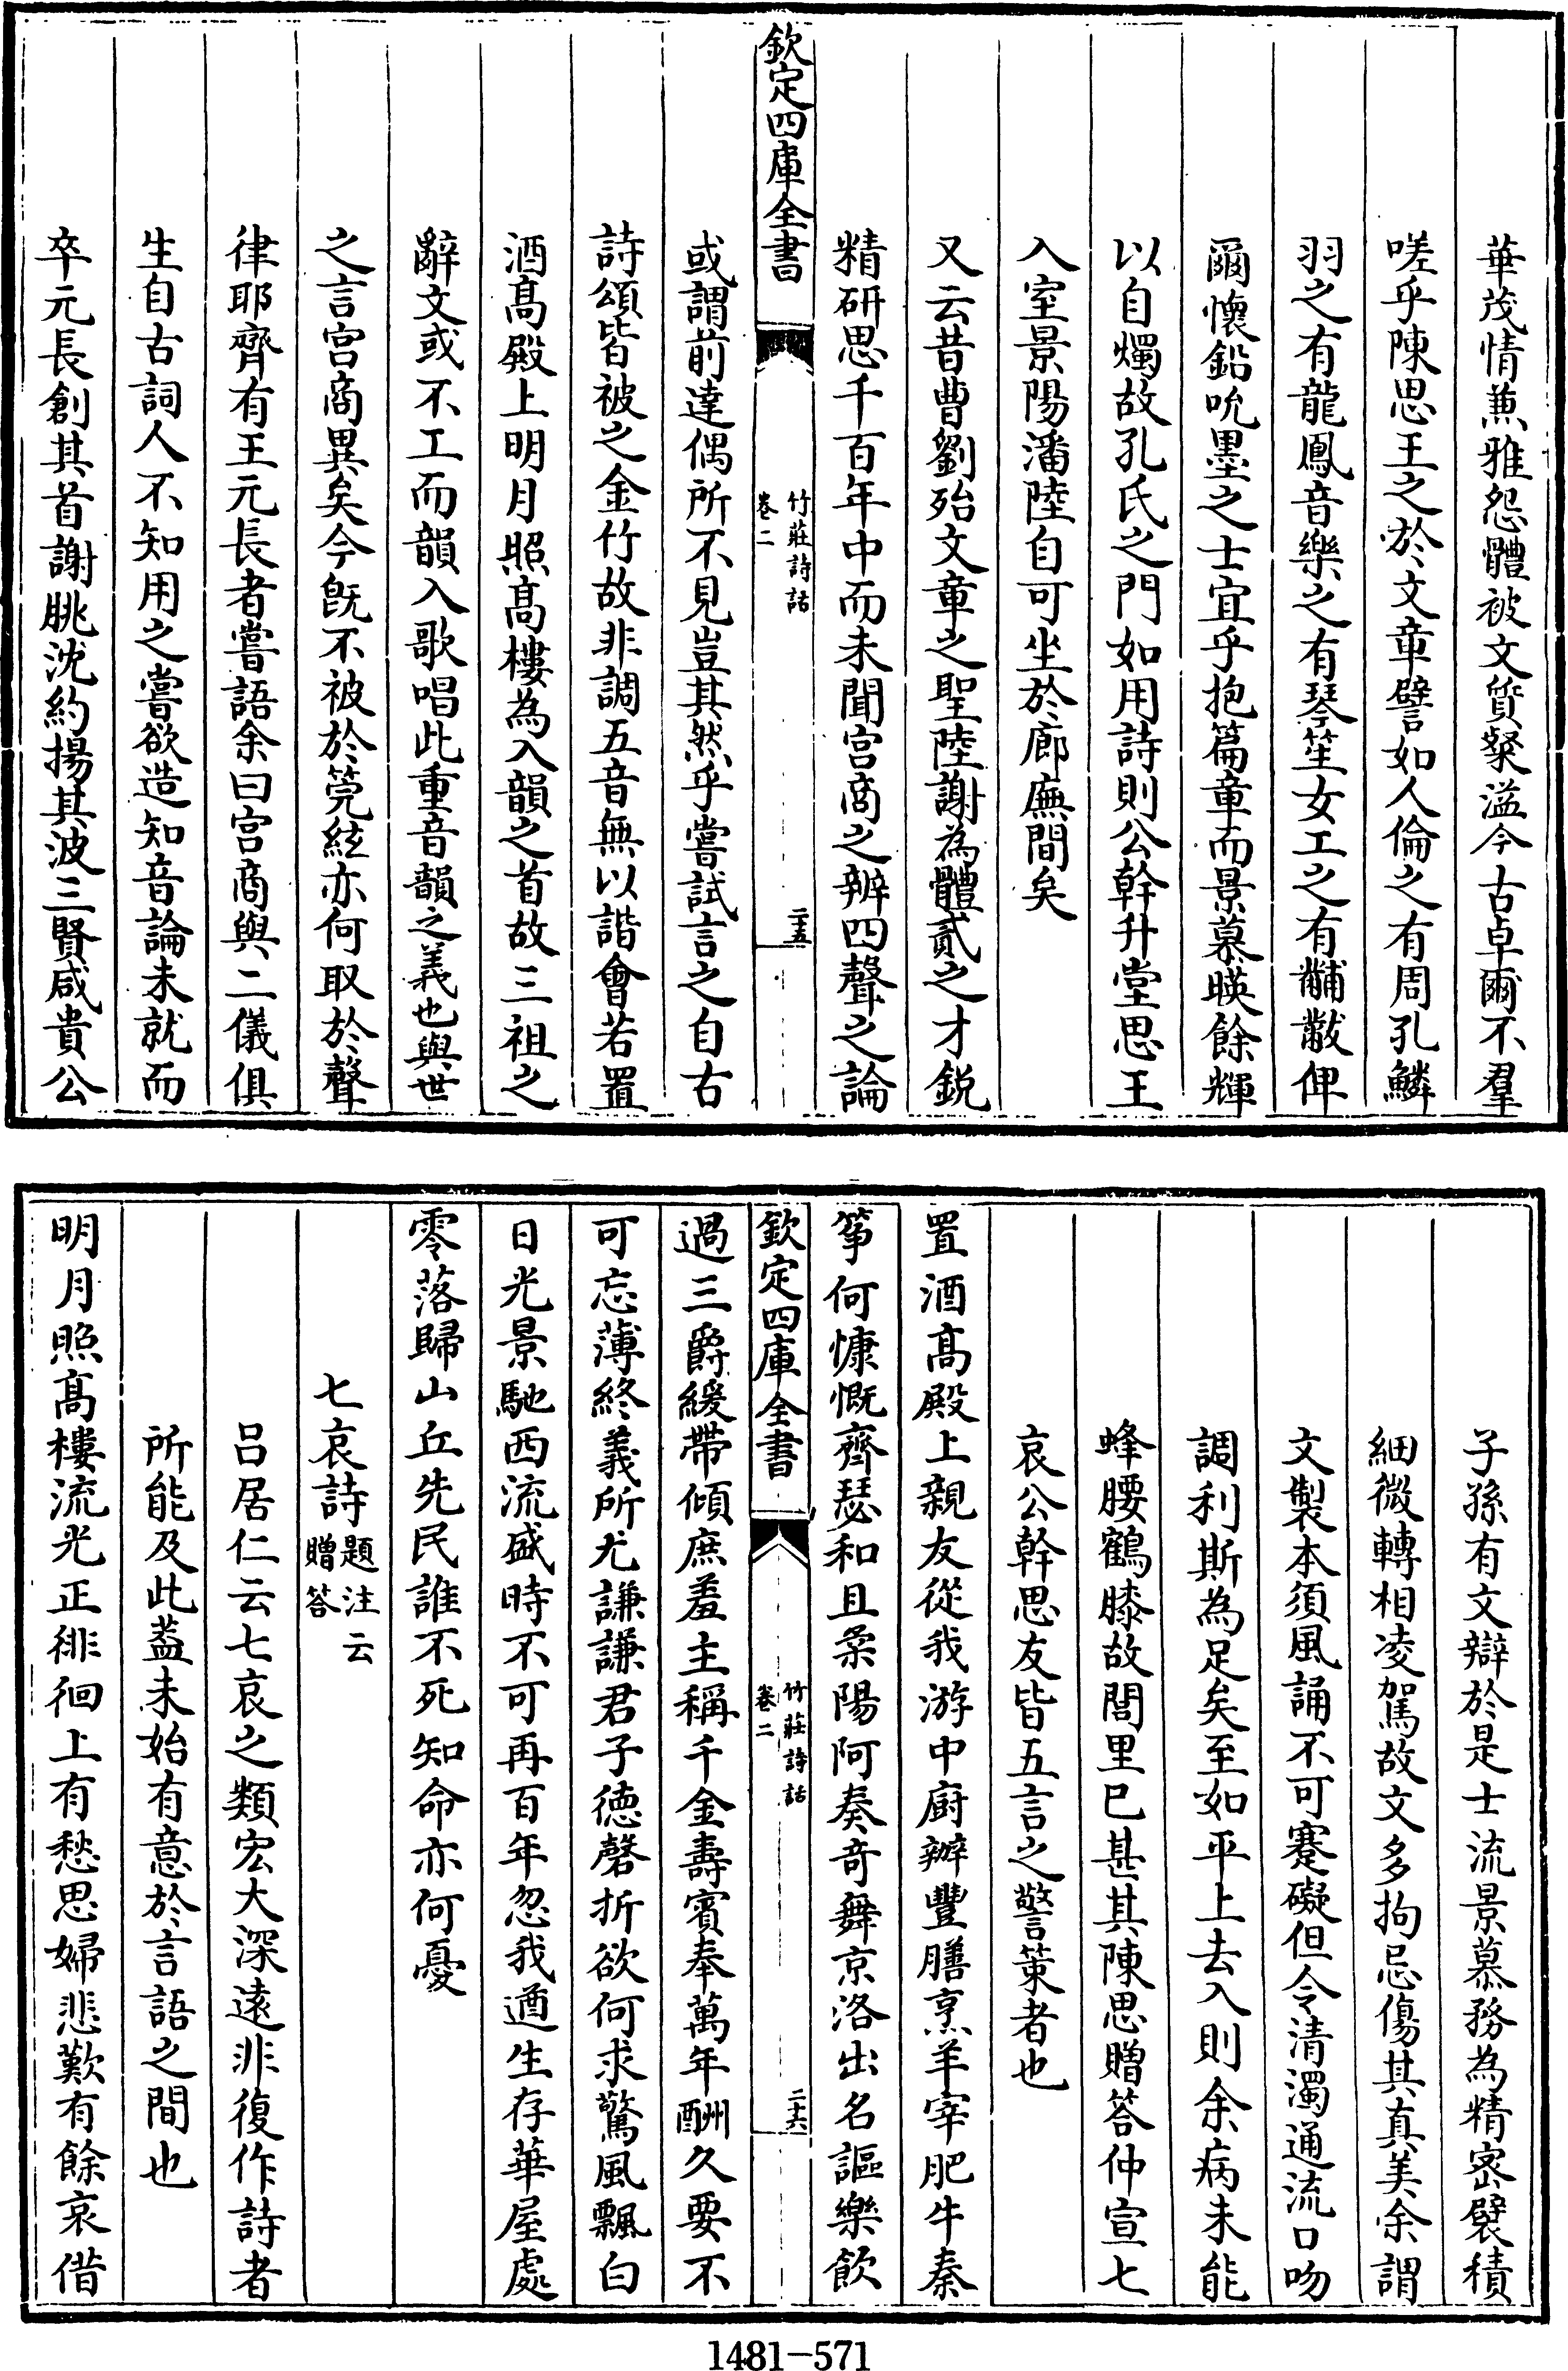 華茂情兼雅怨體被文質粲溢今古卓爾不羣
嗟乎陳思王之於文章譬如人倫之有周孔鱗
羽之有龍鳳音樂之有琴笙女工之有黼黻俾
爾懷鉛吮墨之士宜乎抱篇章而景慕暎餘輝
以自燭故孔氏之門如用詩則公幹升堂思王
入室景陽潘陸自可坐於廊廡間矣
又云昔曹劉殆文章之聖陸謝為體貳之才鋭
精研思千百年中而未聞宫商之辨四聲之論
欽定四庫全書
竹莊詩話
卷二
二十五
或謂前達偶所不見豈其然乎嘗試言之自古
詩頌皆被之金竹故非調五音無以諧會若置
酒髙殿上明月照髙樓為入韻之首故三祖之
辭文或不工而韻入歌唱此重音韻之義也與世
之言宫商異矣今旣不被於筦絃亦何取於聲
律耶齊有王元長者嘗語余曰宫商與二儀俱
生自古詞人不知用之嘗欲造知音論未就而
卒元長創其首謝朓沈約揚其波三賢咸貴公
子孫有文辯於是士流景慕務為精宻襞積
細微轉相凌駕故文多拘忌傷其真美余謂
文製本須風誦不可蹇礙但令清濁通流口吻
調利斯為足矣至如平上去入則余病未能
蜂腰鶴膝故閭里已甚其陳思贈答仲宣七
哀公幹思友皆五言之警策者也
置酒髙殿上親友從我游中廚辦豐膳烹羊宰肥牛秦
筝何慷慨齊瑟和且柔陽阿奏奇舞京洛出名謳樂飲
欽定四庫全書
竹莊詩話
卷二
二十六
過三爵緩帶傾庶羞主稱千金壽賓奉萬年酬久要不
可忘薄終義所尤謙謙君子徳磬折欲何求驚風飄白
日光景馳西流盛時不可再百年忽我遒生存華屋處
零落歸山丘先民誰不死知命亦何憂
七哀詩題注云贈答
吕居仁云七哀之類宏大深遠非復作詩者
所能及此葢未始有意於言語之間也
明月照髙樓流光正徘徊上有愁思婦悲歎有餘哀借
1481-571